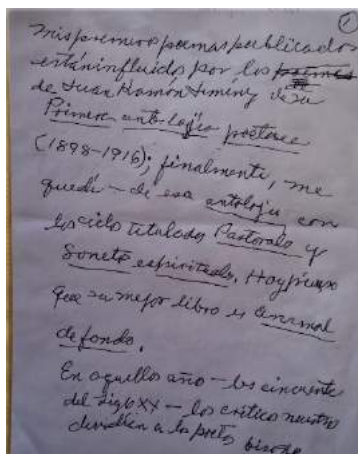 1
mis primeros poemas publicados
están influidos por los poemas
de Juan Ramón Jiménez de su
Primera antología poética
(1898-1916); finalmente, me
quedé - de esa antología con
los ciclo titulados Pastorales y
Sonetos espirituales. Hoy pienso
que su mejor libro es Animal
de fondo.
En aquellos año - los cincuenta
del siglo XX - los críticos nuestro
a los poetas